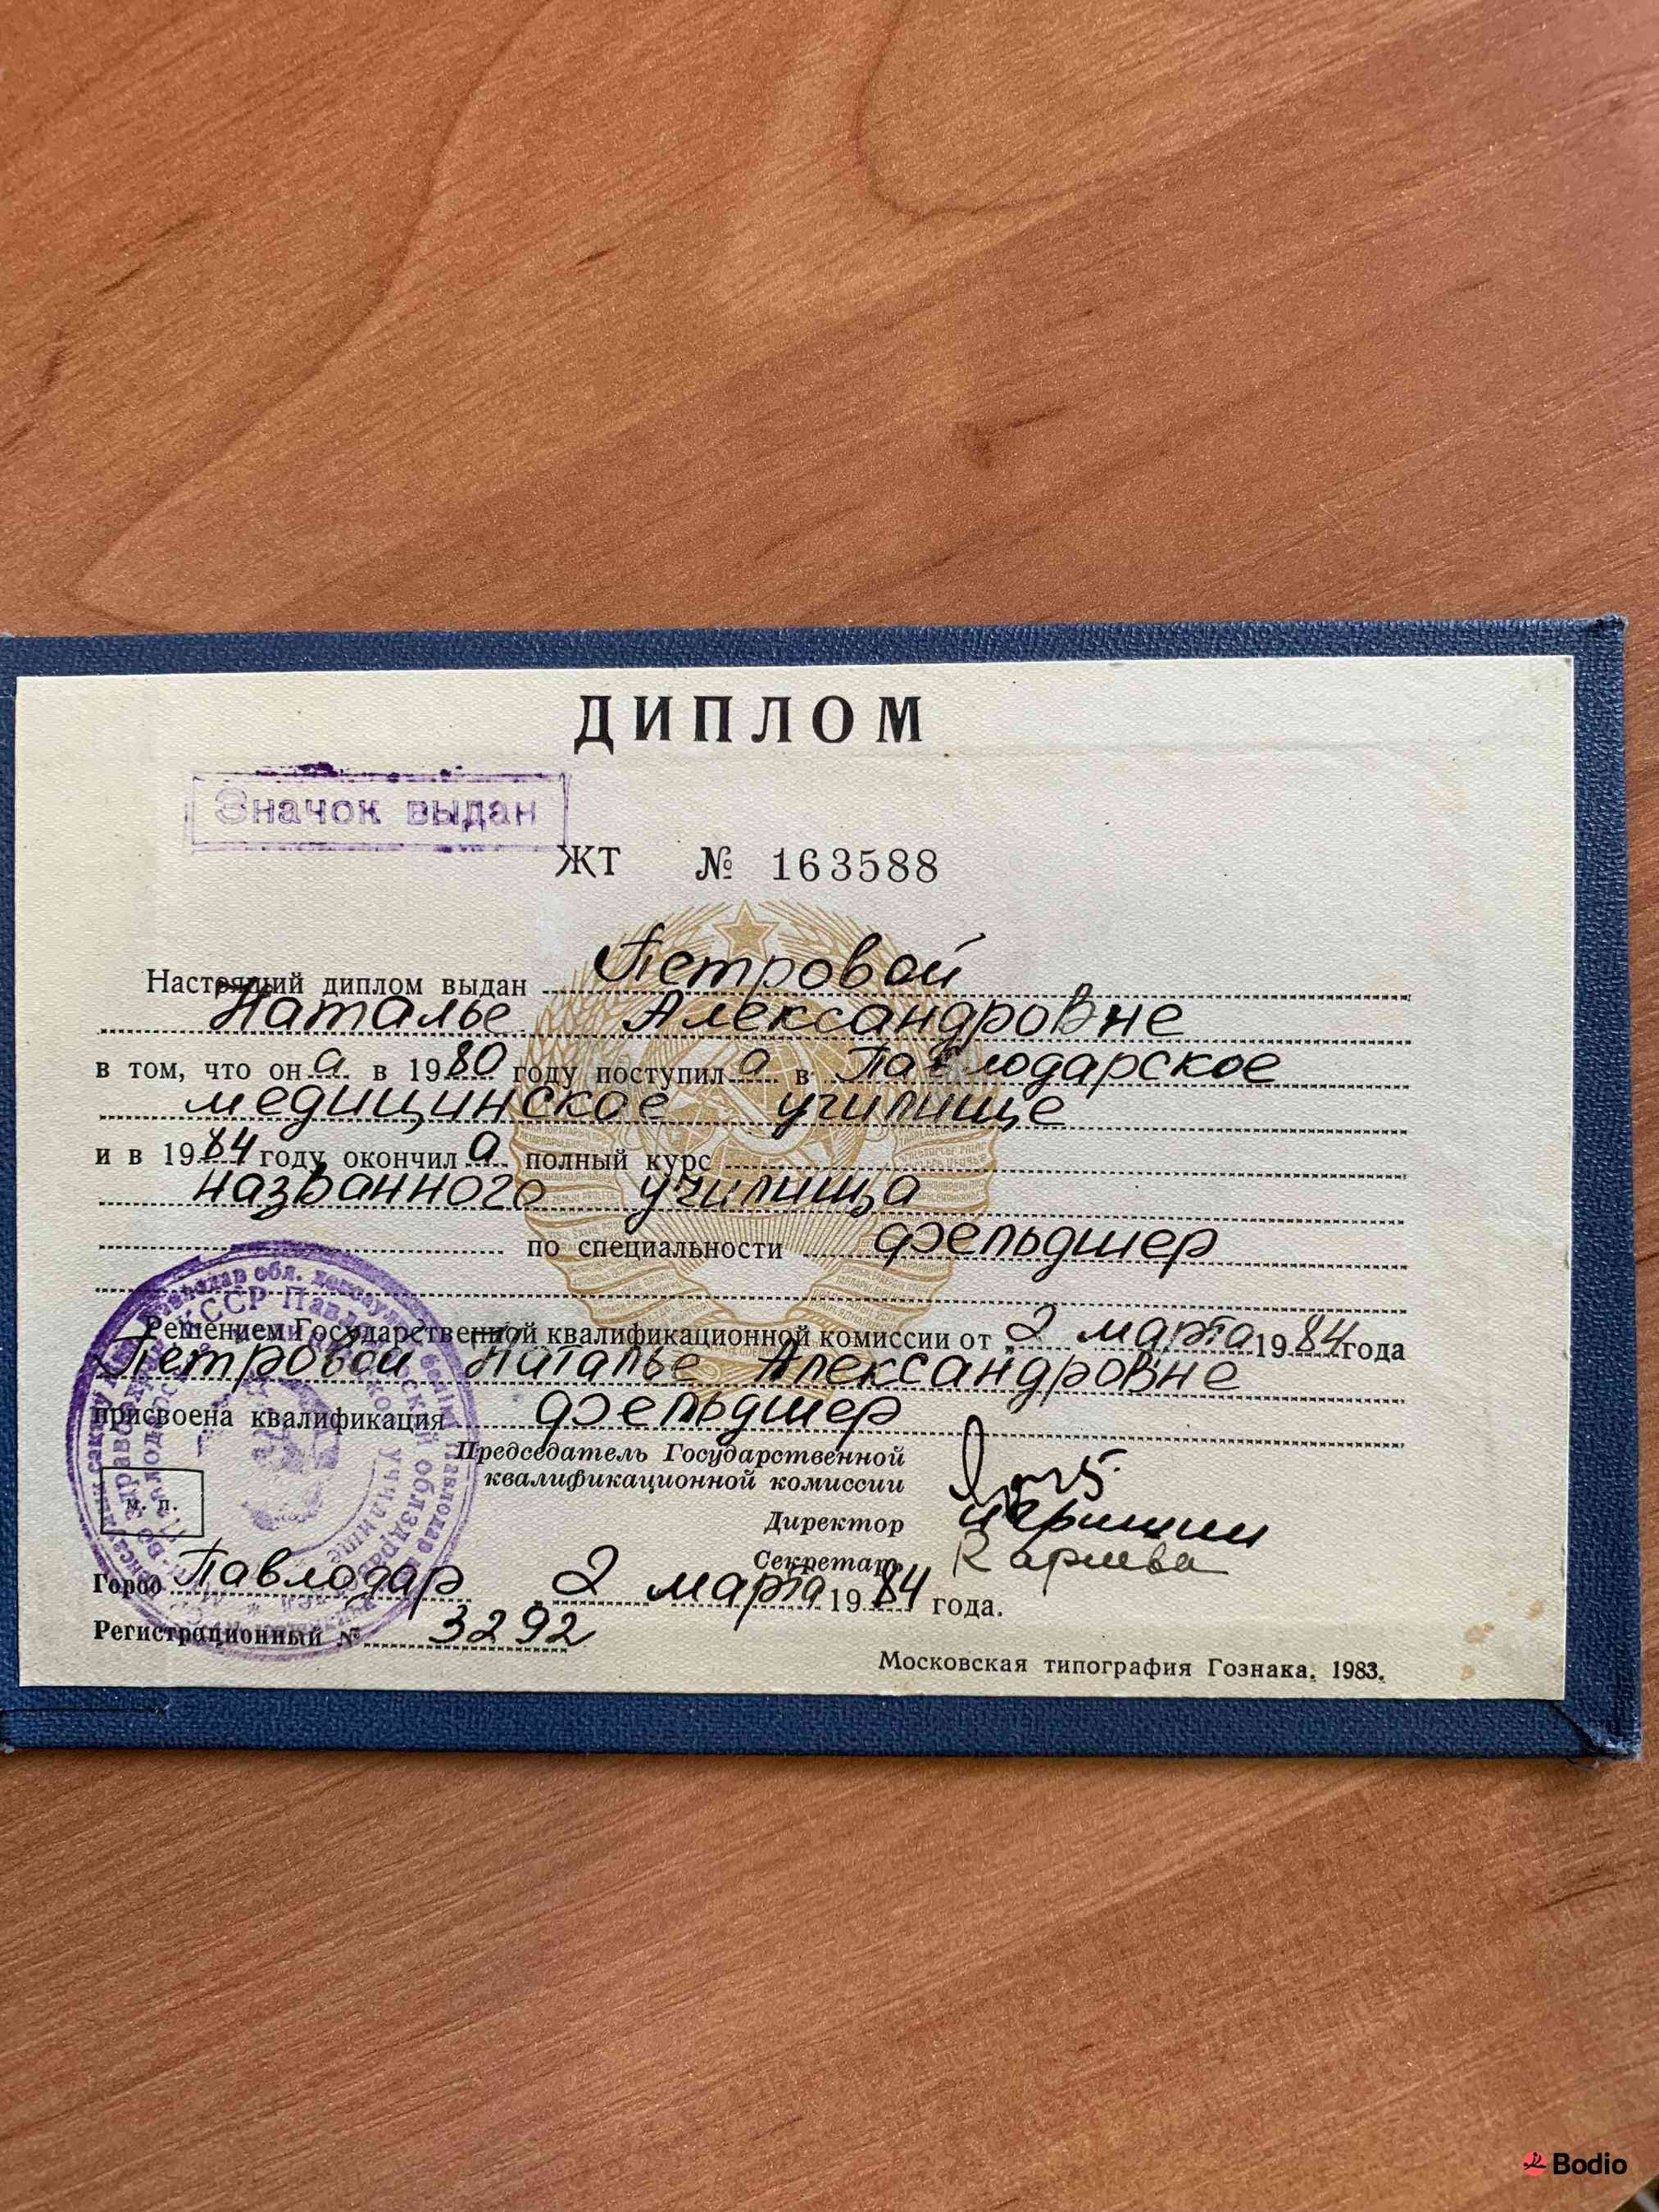 ДИПЛОМ
Значок выдан
ЖТ № 163588
Настоящий диплом выдан Петровой
Наталье Александровне
в том, что он а в 1980 году поступил а в Павлодарское
медицинское училище
и в 1984 году окончил а полный курс
названного училища
по специальности фельдшер
Решением Государственной квалификационной комиссии от „2 марта 1984 года
Петровой Наталье Александровне
присвоена квалификация фельдшер
Председатель Государственной
квалификационной комиссии
Директор
Секретарь
м. п.
Город Павлодар 2 марта 1984 года.
Регистрационный № 3292
Московская типография Гознака. 1983.
Bodio